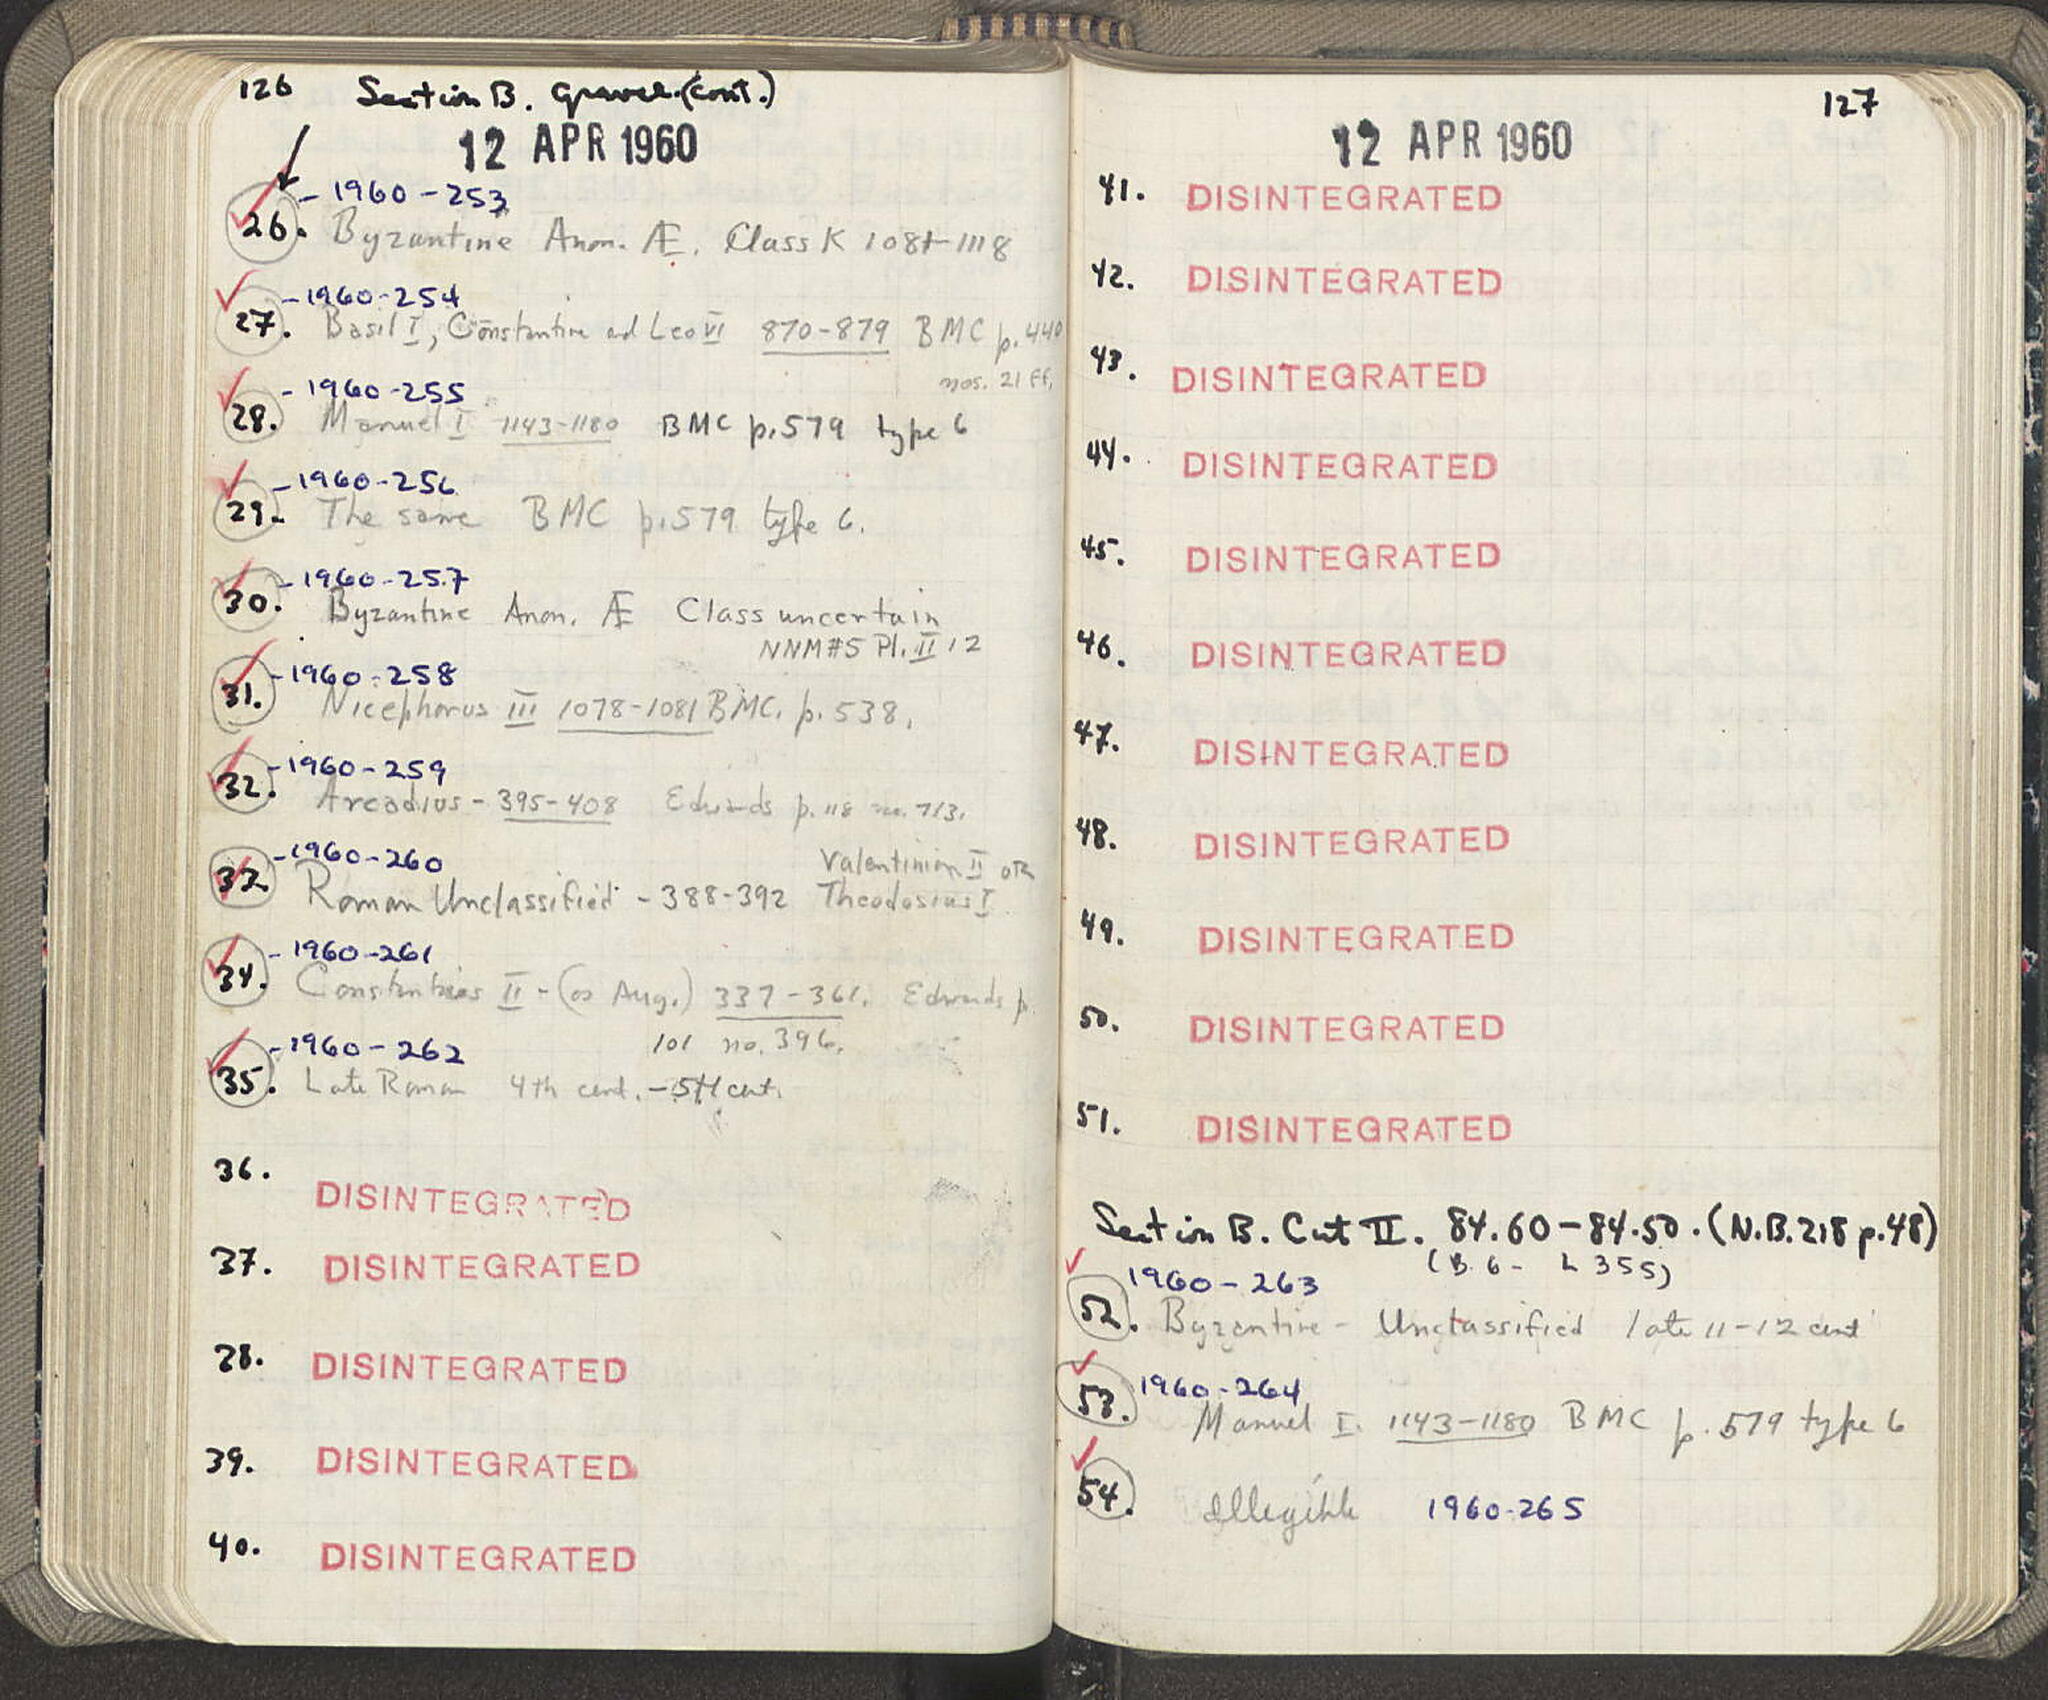 126 Section B. Gravel (cont.)
12 APR 1960
- 1960-253
26. Byzantine Anon. Æ. Class K 1081-1118
- 1960-254
27. Basil I, Constantine and Leo VI 870-879 BMC p. 440
nos. 21 ff.
- 1960-255
28. Manuel I 1143-1180 BMC p. 579 type 6
- 1960-256
29. The same BMC p. 579 type 6.
- 1960-257
30. Byzantine Anon. Æ Class uncertain
NNM#5 Pl. II 12
- 1960-258
31. Nicephorus III 1078-1081 BMC. p. 538.
- 1960-259
32. Arcadius - 395-408 Edwards p. 118 no. 713.
- 1960-260
Valentinian II or
33. Roman Unclassified - 388-392 Theodosius I
- 1960-261
34. Constantius II - (as Aug.) 337-361. Edwards p.
101 no. 396.
- 1960-262
35. Late Roman 4th cent. - 5th cent.
36. DISINTEGRATED
37. DISINTEGRATED
38. DISINTEGRATED
39. DISINTEGRATED
40. DISINTEGRATED
127
12 APR 1960
41. DISINTEGRATED
42. DISINTEGRATED
43. DISINTEGRATED
44. DISINTEGRATED
45. DISINTEGRATED
46. DISINTEGRATED
47. DISINTEGRATED
48. DISINTEGRATED
49. DISINTEGRATED
50. DISINTEGRATED
51. DISINTEGRATED
Section B. Cut II. 84.60-84.50. (N.B. 218 p. 48)
(B. 6 - L 355)
1960-263
52. Byzantine - Unclassified late 11-12 cent
1960-264
53. Manuel I. 1143-1180 BMC p. 579 type 6
54. Illegible 1960-265